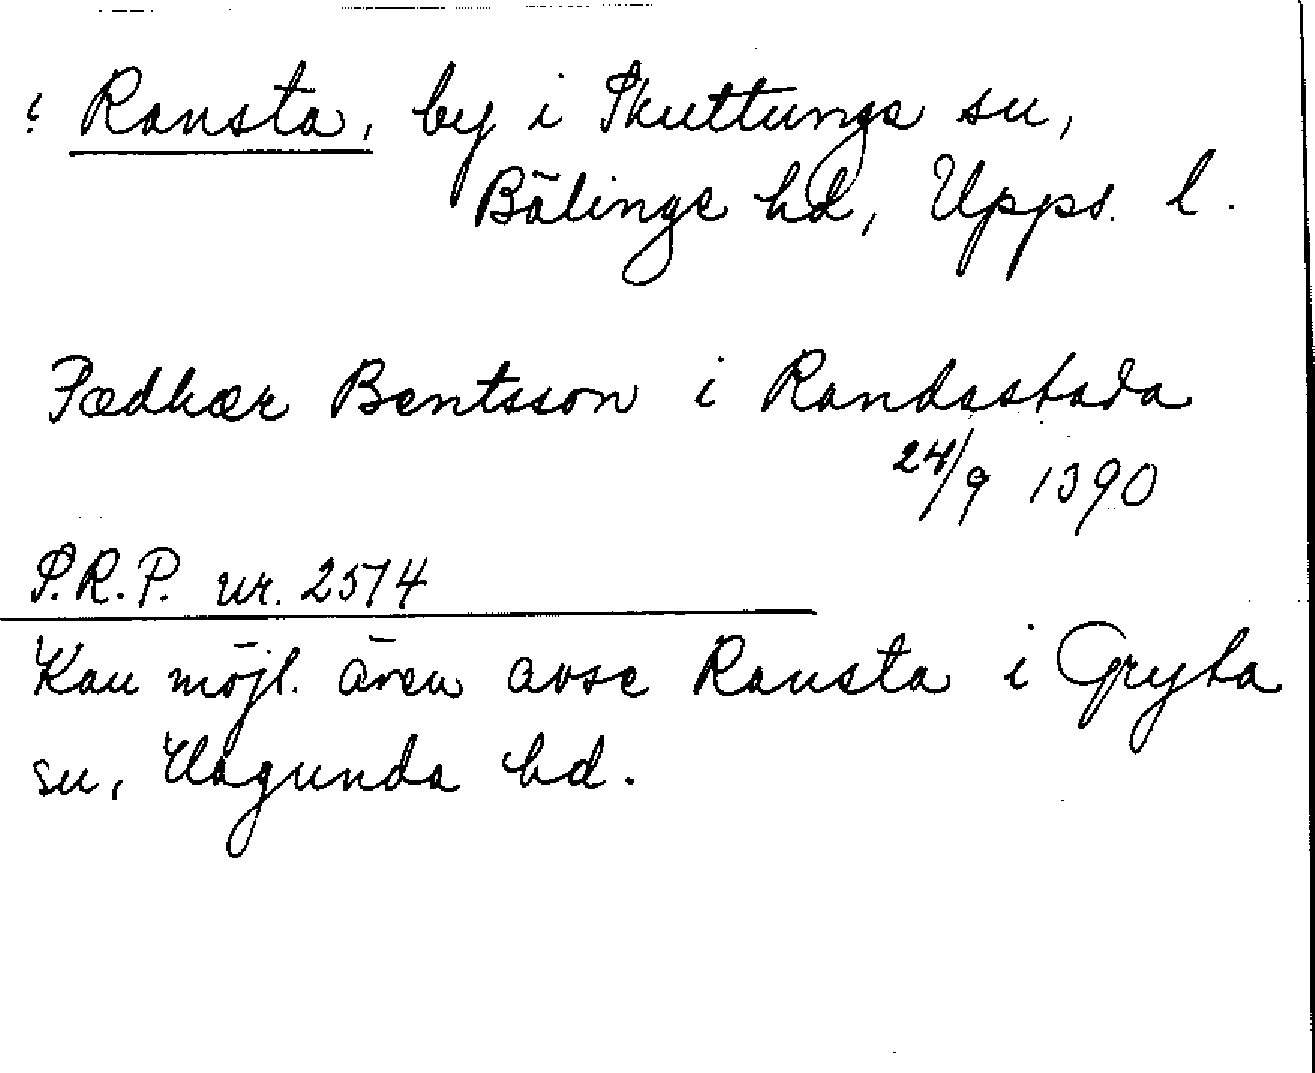 ? Ransta, by i Skuttunge sn,
Bälinge hd, Upps. l.
Pædhær Bentsson i Randastada
24/9 1390
S.R.P. nr. 2574
Kan möjl. även avse Ransta i Gryta
sn, Hagunda hd.